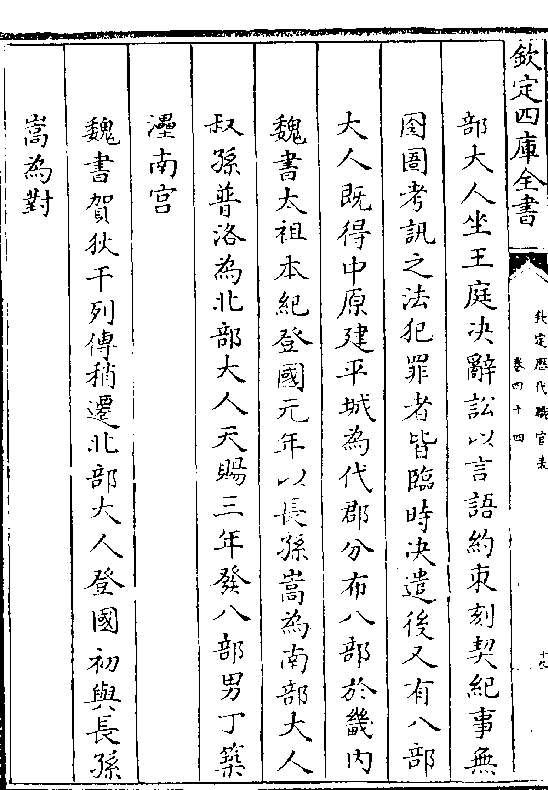 欽定四庫全書
欽定歷代職官表
卷四十四
部大人坐王庭決辭訟以言語約束刻契紀事無
囹圄考訊之法犯罪者皆臨時決遣後又有八部
大人既得中原建平城為代郡分布八部於畿内
魏書太祖本紀登國元年以長孫嵩為南部大人
叔孫普洛為北部大人天賜三年發八部男丁築
灅南宫
魏書賀狄干列傳稍遷北部大人登國初與長孫
嵩為對